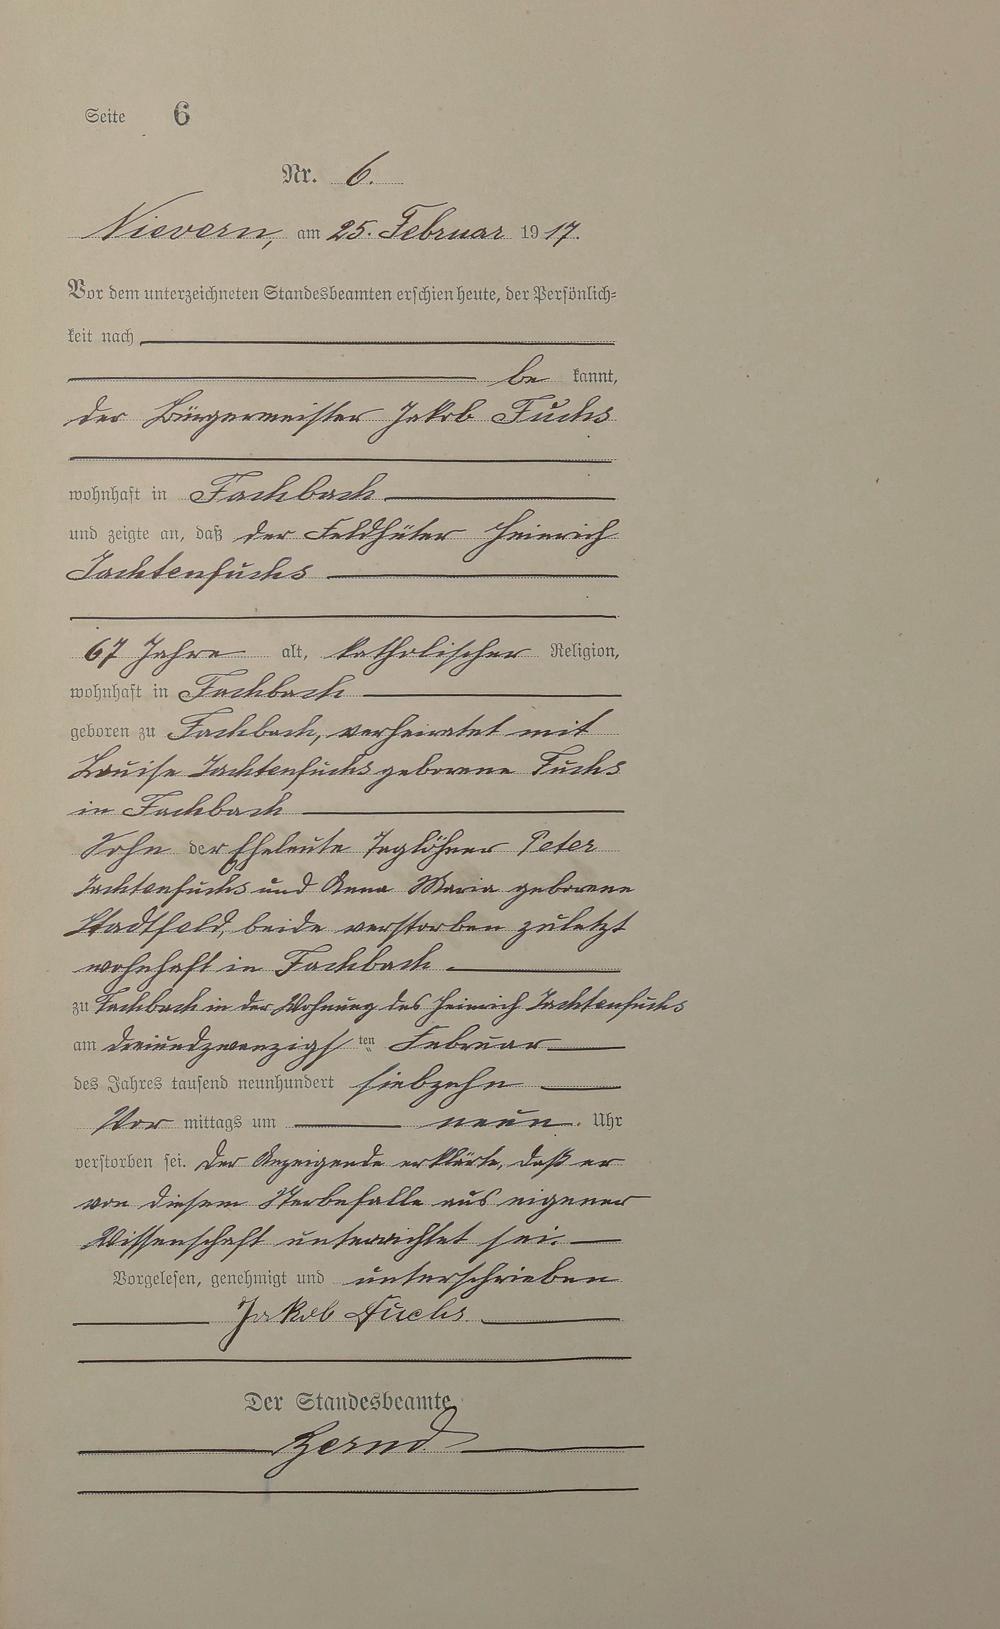 Seite 6
Nr. 6.
Nievern, am 25. Februar 1917.
Vor dem unterzeichneten Standesbeamten erschien heute, der Persönlich=
keit nach
be kannt,
der Bürgermeister Jakob Fuchs
wohnhaft in Fachbach
und zeigte an, daß der Feldhüter Heinrich
Jachtenfuchs
67 Jahre alt, katholischer Religion,
wohnhaft in Fachbach
geboren zu Fachbach, verheiratet mit
Louise Jachtenfuchs geborene Fuchs
in Fachbach
Sohn der Eheleute Taglöhner Peter
Jachtenfuchs und Anna Maria geborene
Stadtfeld, beide verstorben zuletzt
wohnhaft in Fachbach
zu Fachbach in der Wohnung des Heinrich Jachtenfuchs
am dreiundzwanzigsten Februar
des Jahres tausend neunhundert siebzehn
Vor mittags um neun Uhr
verstorben sei. Der Anzeigende erklärte, daß er
von diesem Sterbefalle aus eigener
Wissenschaft unterrichtet sei.
Vorgelesen, genehmigt und unterschrieben
Jakob Fuchs
Der Standesbeamte